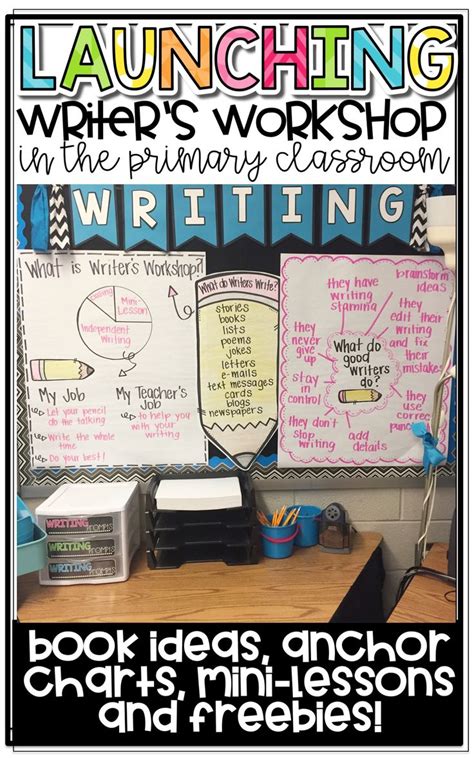 LAUNCHING
WRITER'S WORKSHOP
in the primary classroom
WRITING
What is Writer's Workshop?
Sharing
Mini-
Lesson
Independent
Writing
My Job
Let your pencil
do the talking
Write the whole
time
Do your best!
My Teacher's
Job
to help you
with your
writing
What do Writers Write?
stories
books
lists
poems
jokes
letters
e-mails
text messages
cards
blogs
newspapers
What do
good
writers
do?
they have
writing
stamina
brainstorm
ideas
they
edit their
writing
and fix
their
mistakes
they
use
correct
add
details
they don't
stop
writing
stay
in
control
they
never
give
up
WRITING
PROMPTS
WRITING
PROMPTS
WRITING
PROMPTS
book ideas, anchor
charts, mini-lessons
and freebies!